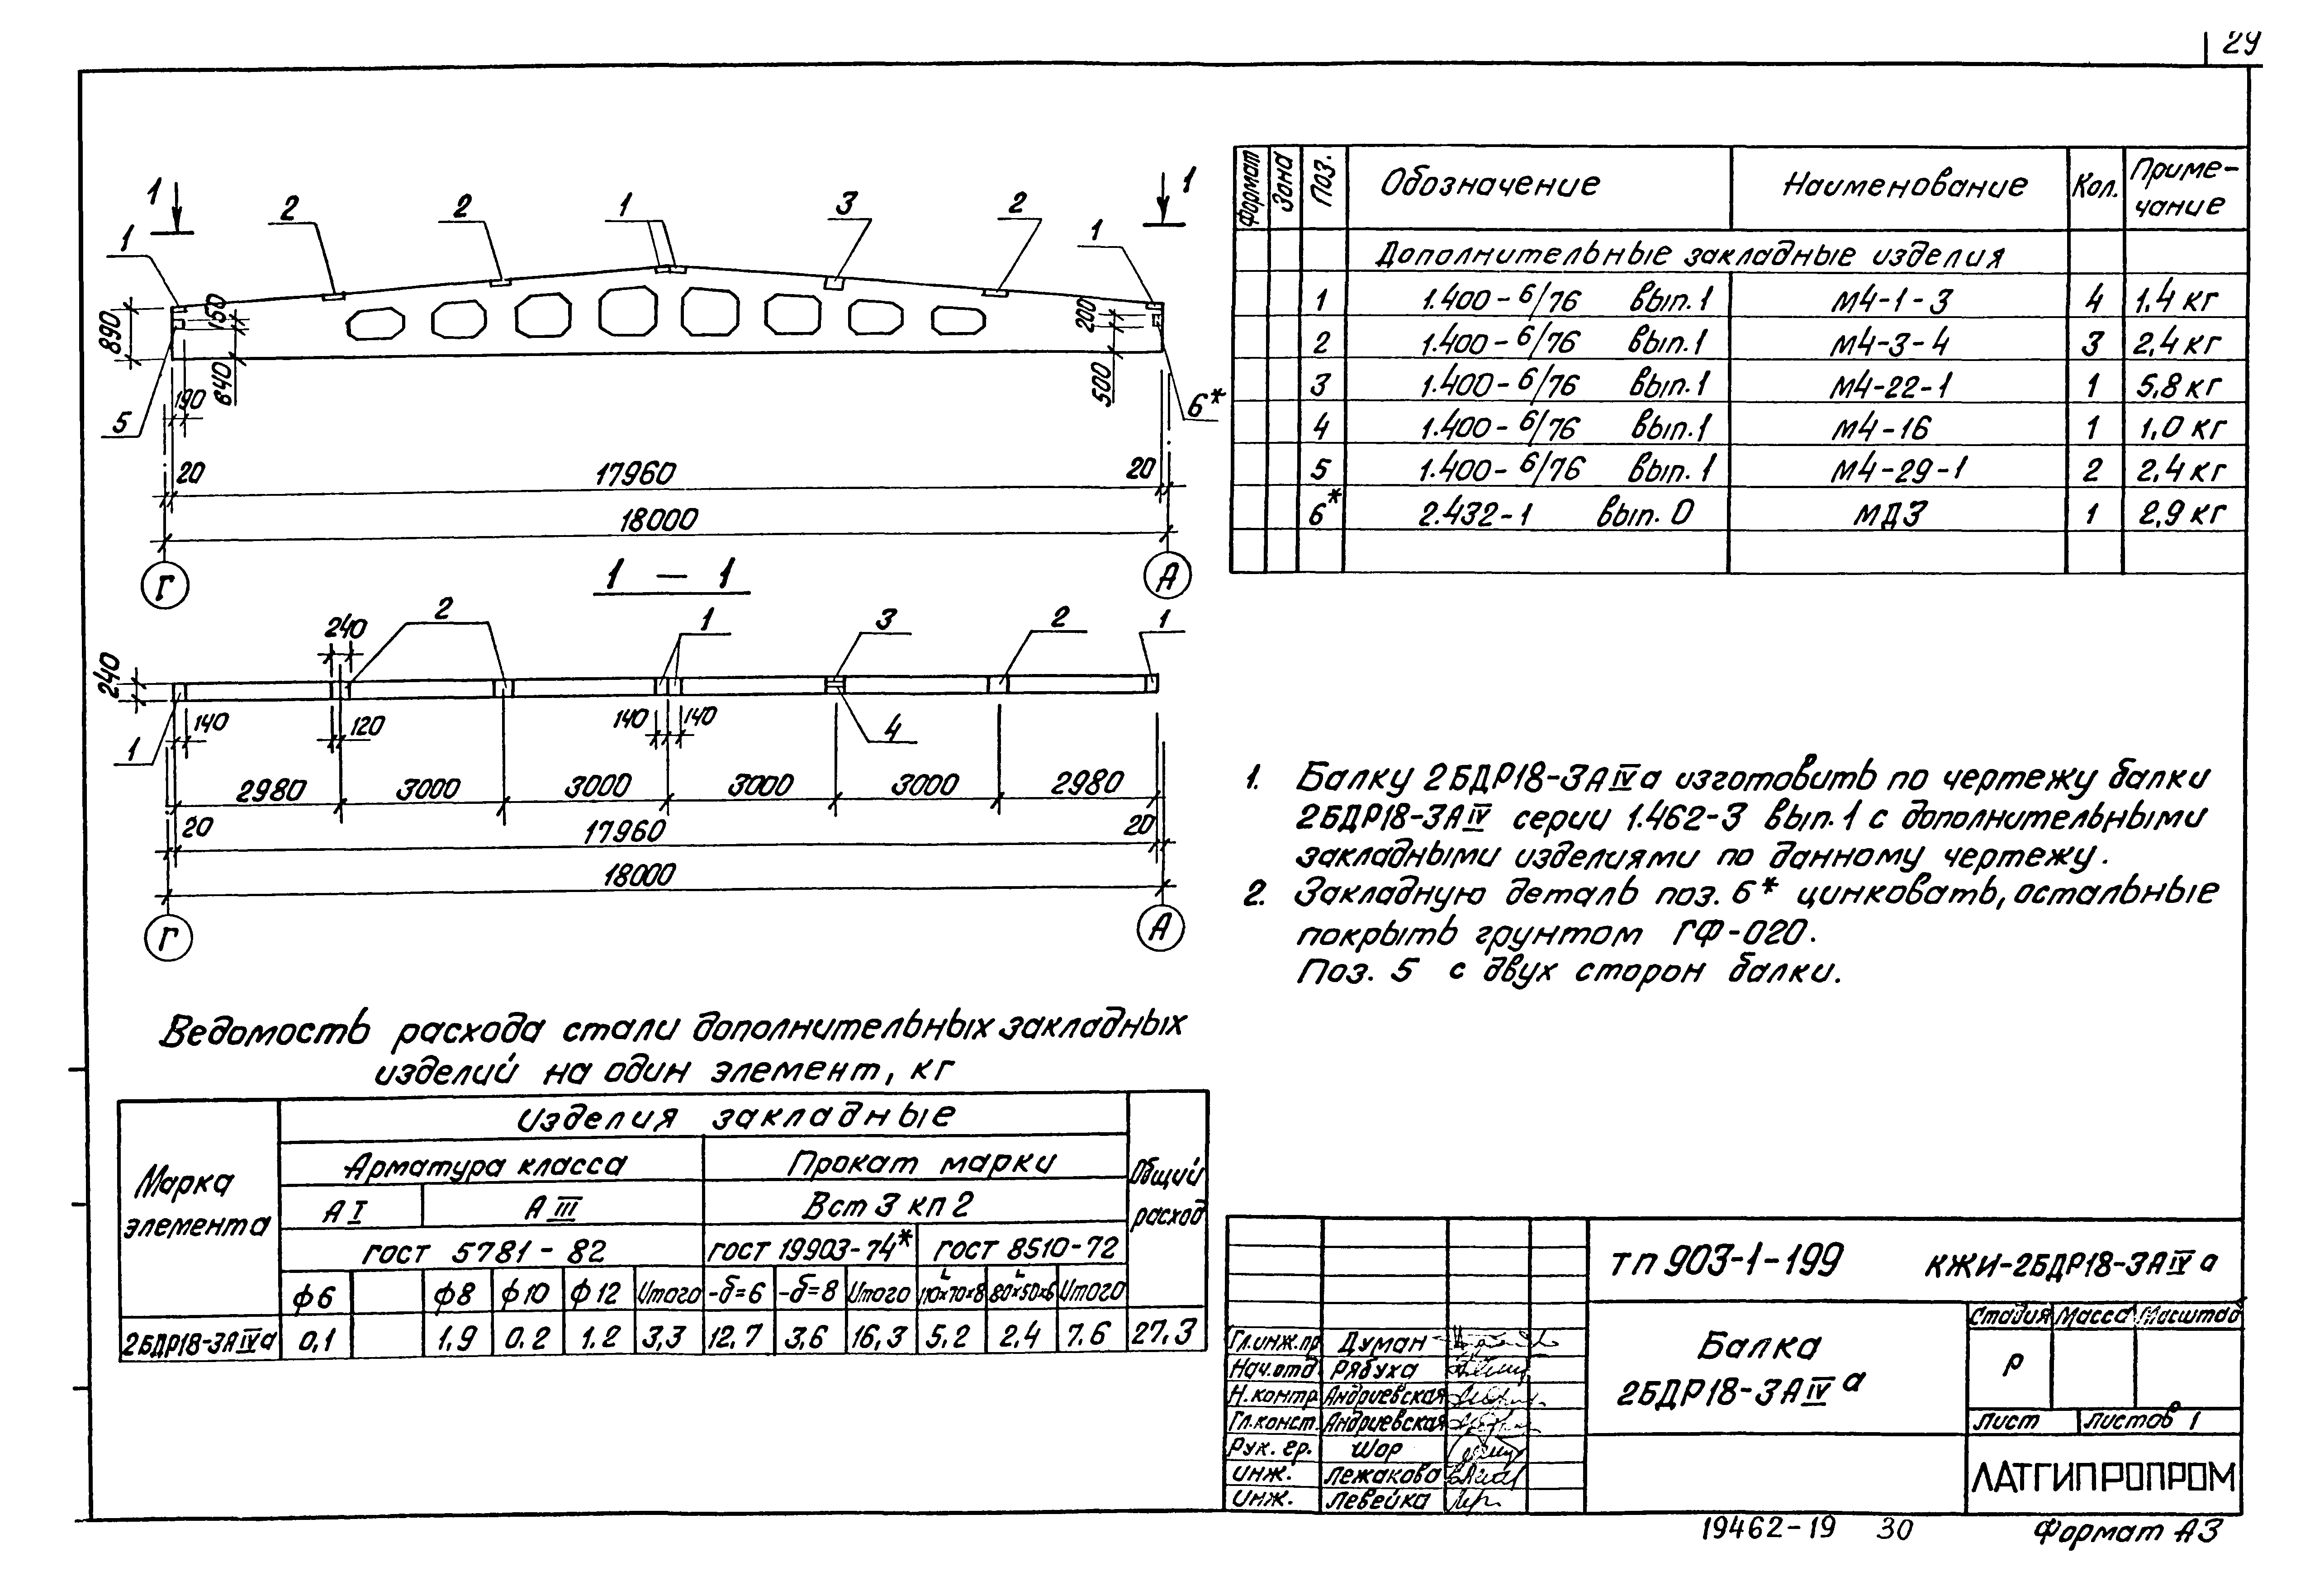 29
1 1
2 2 1 3 2
1 1
890 150 840 190 5
200 500 6*
20 17960 20
18000
Г А
1 – 1
240 2 1 3 2 1
240
140 120 140 140 4
1
2980 3000 3000 3000 3000 2980
20 17960 20
18000
Г А
Формат Зона Поз. Обозначение Наименование Кол. Приме-
чание
Дополнительные закладные изделия
1 1.400-6/76 вып.1 М4-1-3 4 1,4 кг
2 1.400-6/76 вып.1 М4-3-4 3 2,4 кг
3 1.400-6/76 вып.1 М4-22-1 1 5,8 кг
4 1.400-6/76 вып.1 М4-16 1 1,0 кг
5 1.400-6/76 вып.1 М4-29-1 2 2,4 кг
6* 2.432-1 вып. 0 МД3 1 2,9 кг
1. Балку 2БДР18-3АIVа изготовить по чертежу балки
2БДР18-3АIV серии 1.462-3 вып.1 с дополнительными
закладными изделиями по данному чертежу.
2. Закладную деталь поз. 6* цинковать, остальные
покрыть грунтом ГФ-020.
Поз. 5 с двух сторон балки.
Ведомость расхода стали дополнительных закладных
изделий на один элемент, кг
Марка
элемента
Изделия закладные
Общий
расход
Арматура класса Прокат марки
АI АIII Вст 3 кп 2
гост 5781-82 гост 19903-74* гост 8510-72
ф6 ф8 ф10 ф12 Итого -δ=6 -δ=8 Итого L110×70×8 L80×50×6 Итого
2БДР18-3АIVа 0,1 1,9 0,2 1,2 3,3 12,7 3,6 16,3 5,2 2,4 7,6 27,3
тп 903-1-199 КЖИ-2БДР18-3АIVа
Балка
2БДР18-3АIVа
Стадия Масса Масштаб
Р
Лист Листов 1
ЛАТГИПРОПРОМ
Гл.инж.пр Думан
Нач.отд. Рябуха
Н.контр. Андриевская
Гл.конст. Андриевская
Рук. гр. Шор
инж. Лежакова
инж. Левейка
19462-19 30 Формат А3